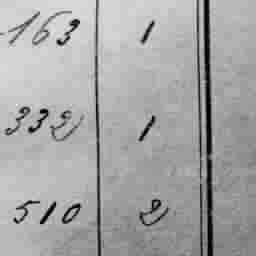 163 1
332 1
510 2